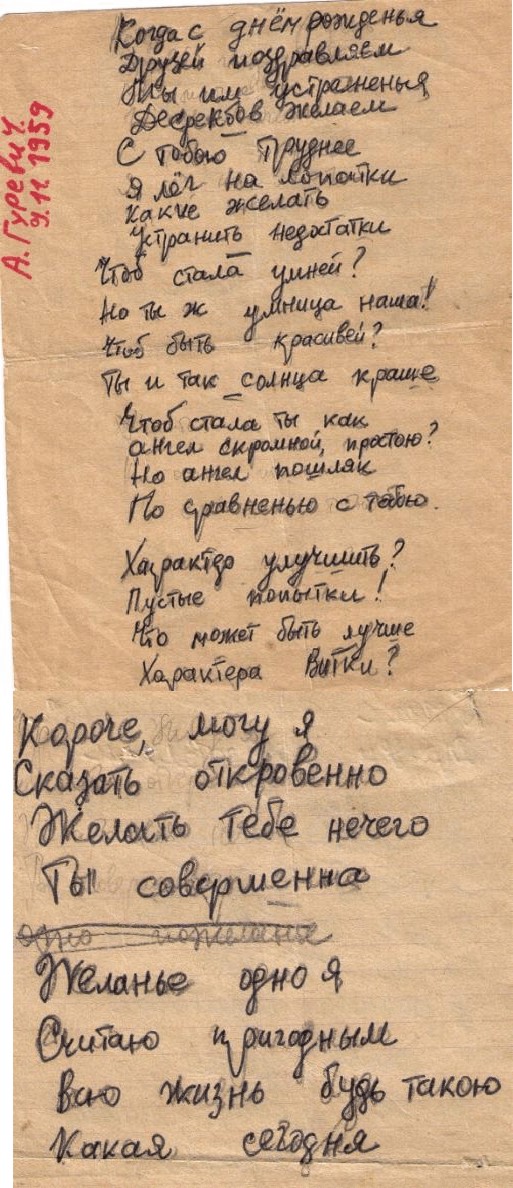 А. Гуревич.
9.11 1959
Когда с днём рожденья
Друзей поздравляем
Мы им устраненья
Дефектов желаем
С тобою труднее
Я лёг на лопатки
Какие желать
Устранить недостатки
Чтоб стала умней?
Но ты ж умница наша!
Чтоб быть красивей?
Ты и так солнца краше
Чтоб стала ты как
ангел скромной, простою?
Но ангел пошляк
По сравненью с тобою.
Характер улучшить?
Пустые попытки!
Что может быть лучше
Характера Витки?
Короче, могу я
Сказать откровенно
Желать тебе нечего
Ты совершенна
одно пожеланье
Желанье одно я
Считаю пригодным
Всю жизнь будь такою
Какая сегодня